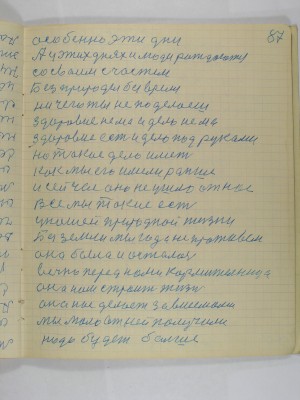 87
особенно эти дни
А у этих днях и люди рождаются
со своим счастьем
Без природы
ничего ты не поделаеш
здоровие неме и дело нема
здоровие ест и дело под руками
но такое дело имет
как мы его имели раньше
и сейчас оно не ушло от нас
Все мы такие ест
у нашей природной жизни
Без земли мы год не проживем
она была и осталас
вечно перед нами кормителница
она нам строит жизн
она нас делает за
мы мало от ней получили
надо будет болше